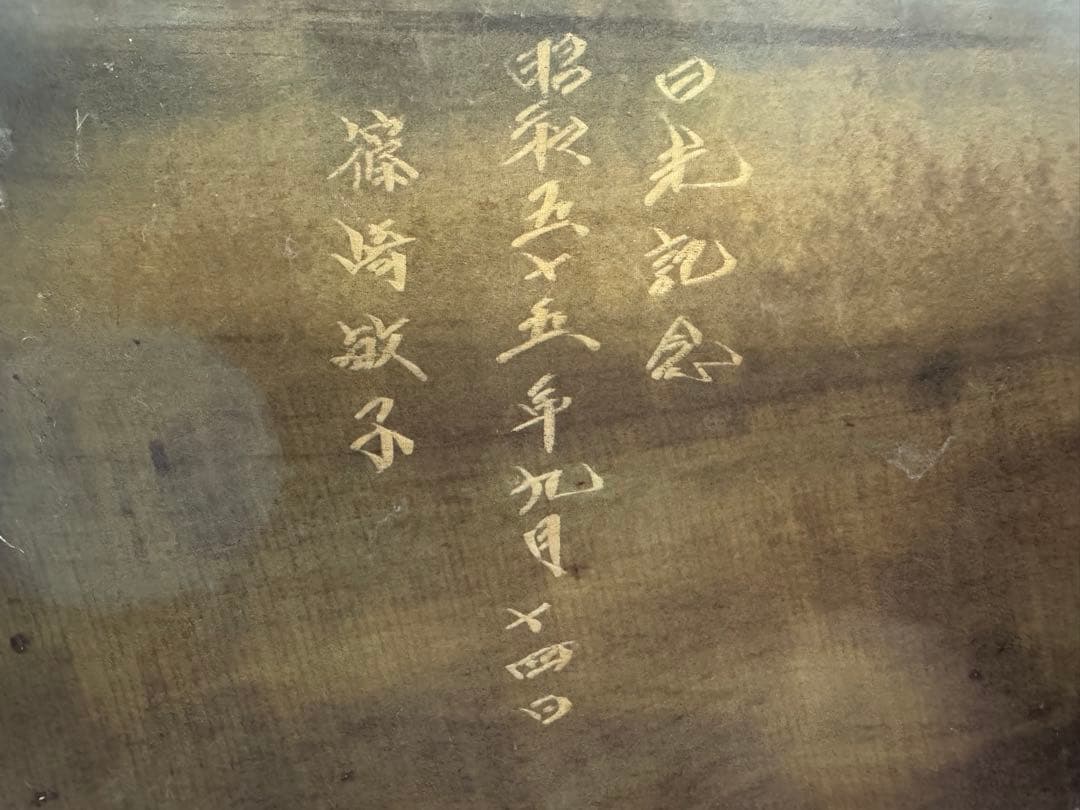 日光記念
昭和五十五年九月十四日
篠崎敏子